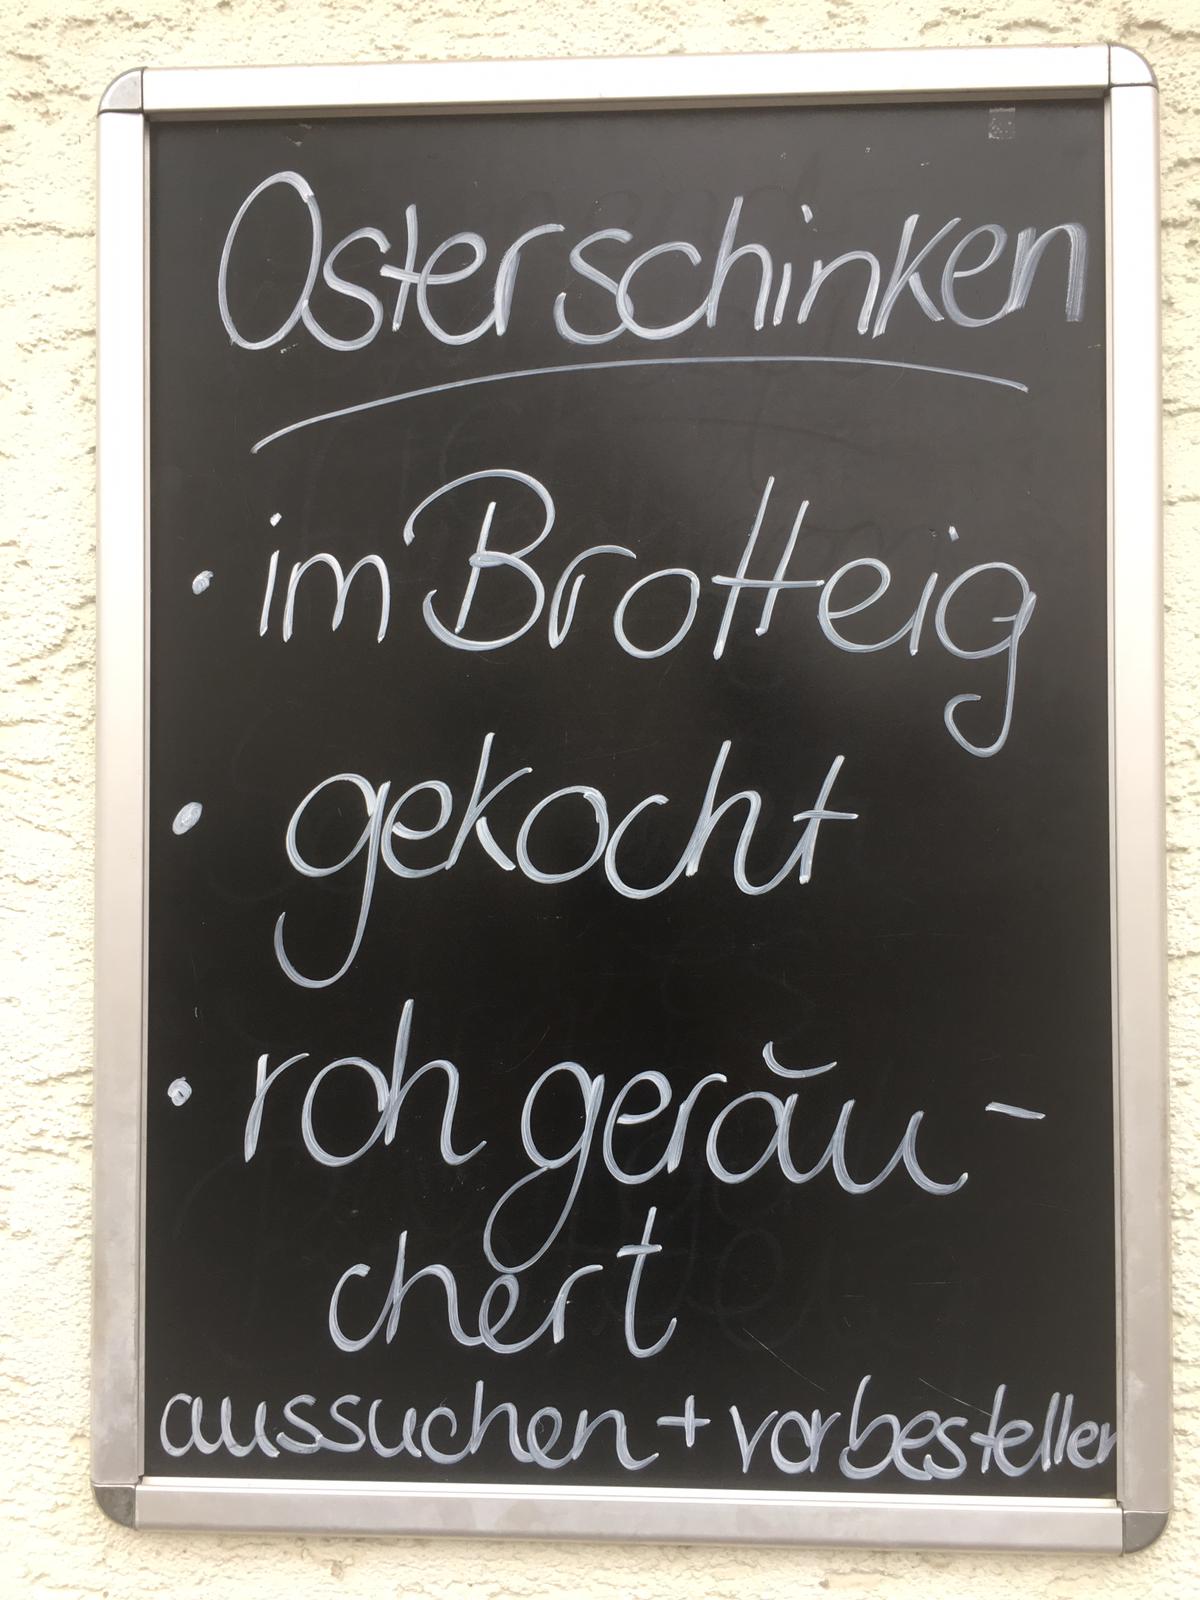 Osterschinken
• im Brotteig
• gekocht
• roh geräu-
chert
aussuchen + vorbestellen